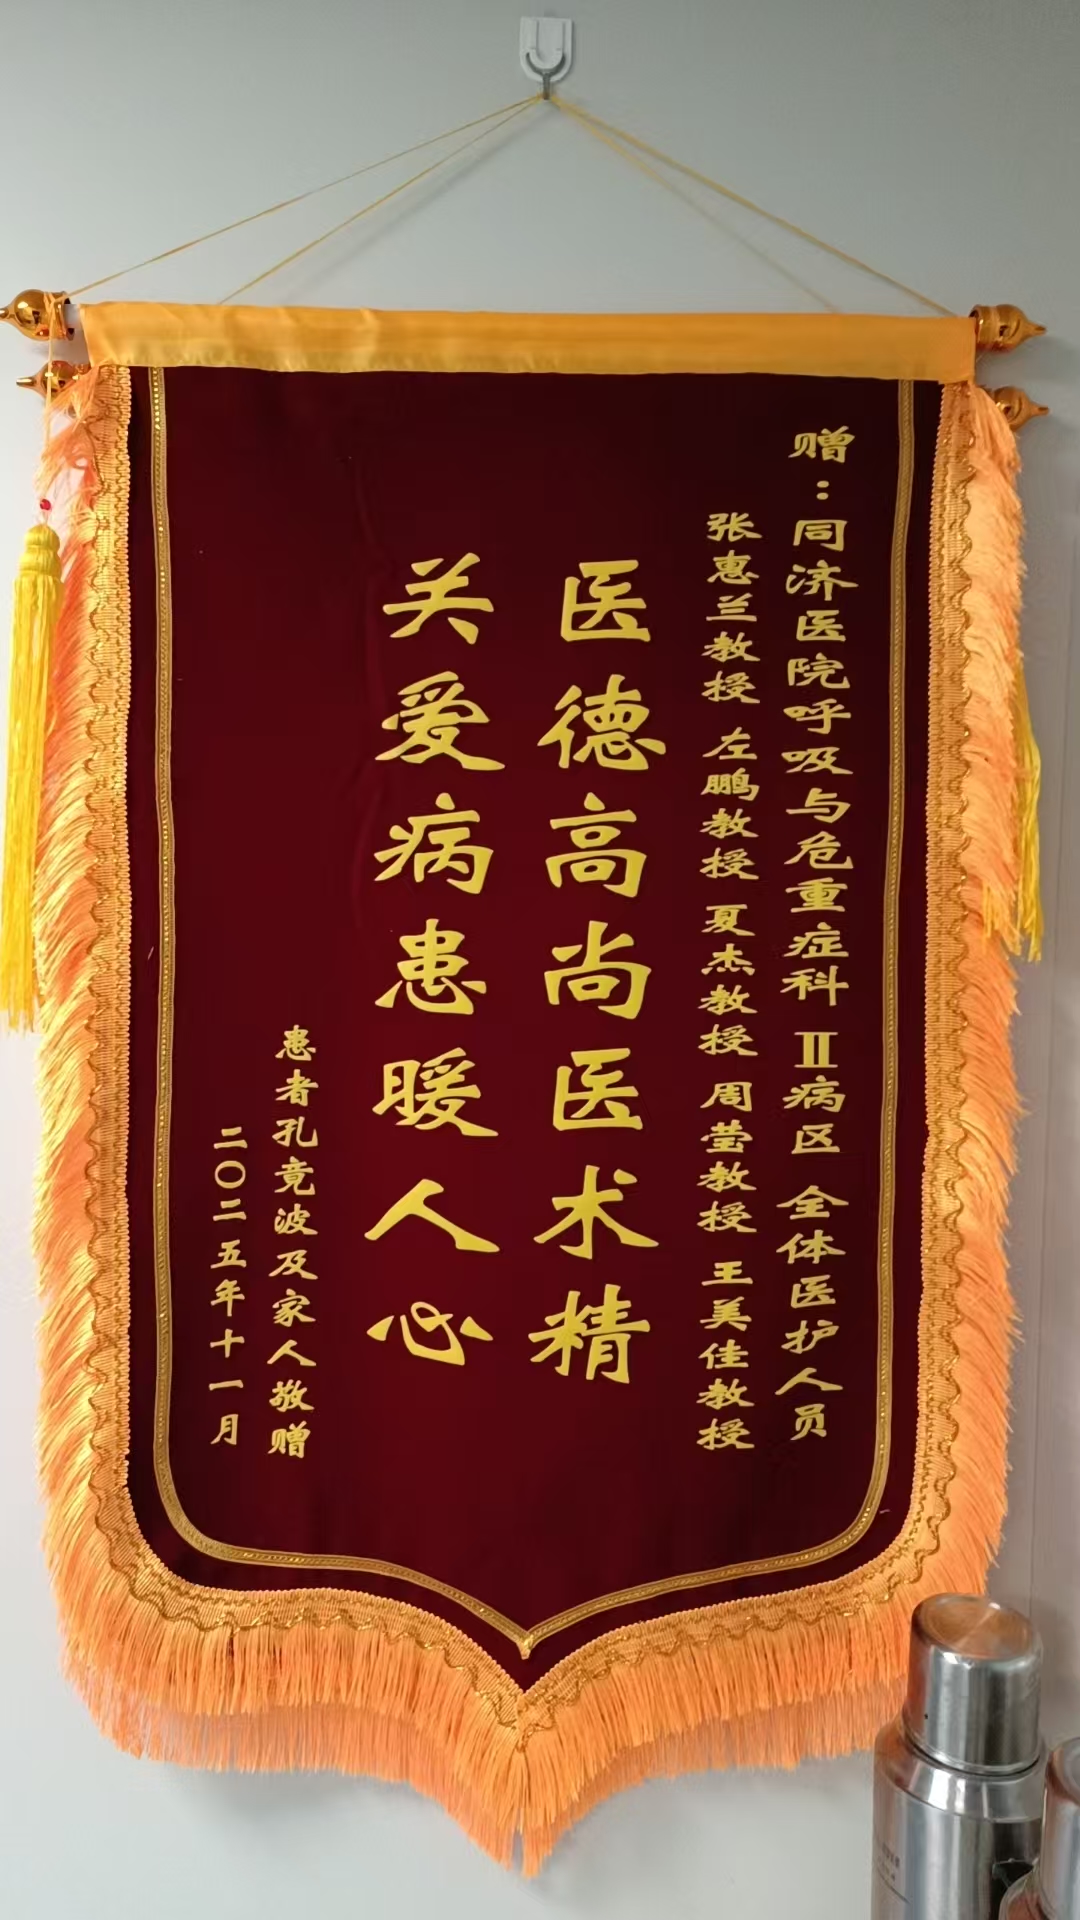 赠：同济医院呼吸与危重症科 Ⅱ病区 全体医护人员
张惠兰教授 左鹏教授 夏杰教授 周莹教授 王美佳教授
医德高尚医术精
关爱病患暖人心
患者孔竟波及家人敬赠
二〇二五年十一月